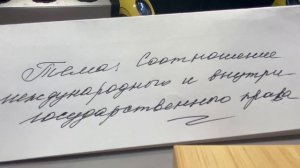 Тема: Соотношение
международного и внутри
государственного права